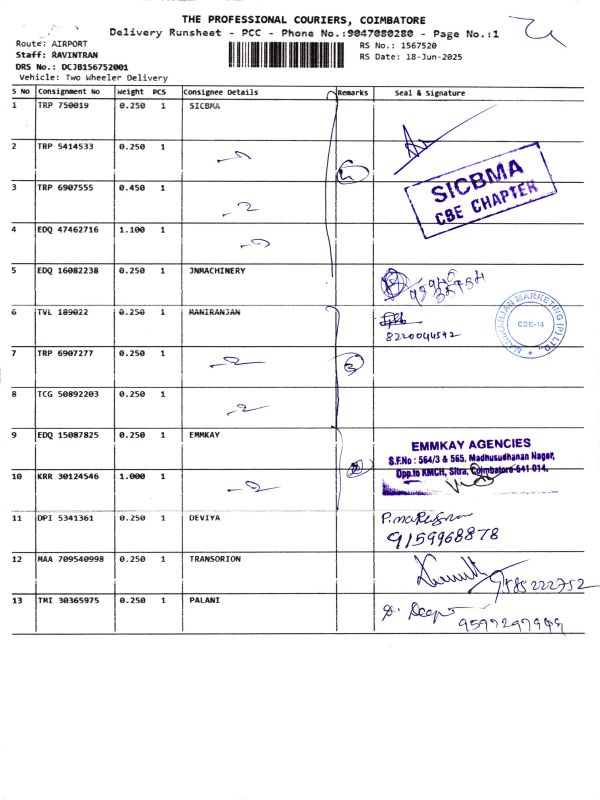 THE PROFESSIONAL COURIERS, COIMBATORE
Delivery Runsheet - PCC - Phone No.:9047080280 - Page No.:1
Route: AIRPORT
Staff: RAVINTRAN
DRS No.: DCJB156752001
Vehicle: Two Wheeler Delivery
RS No.: 1567520
RS Date: 18-Jun-2025
S No Consignment No Weight PCS Consignee Details Remarks Seal & Signature
1 TRP 750019 0.250 1 SICBMA
2 TRP 5414533 0.250 1
3 TRP 6907555 0.450 1
4 EDQ 47462716 1.100 1
SICBMA
CBE CHAPTER
5 EDQ 16082238 0.250 1 JNMACHINERY
6 TVL 189022 0.250 1 MANIRANJAN
8220044542
MANIRANJAN MARKETING (P) LTD.,
CBE-14
7 TRP 6907277 0.250 1
3
8 TCG 50892203 0.250 1
9 EDQ 15087825 0.250 1 EMMKAY
EMMKAY AGENCIES
S.F.No : 564/3 & 565, Madhusudhanan Nagar,
Opp.to KMCH, Sitra, Coimbatore-641 014.
10 KRR 30124546 1.000 1
11 DPI 5341361 0.250 1 DEVIYA
9159968878
12 MAA 709540998 0.250 1 TRANSORION
13 TMI 30365975 0.250 1 PALANI